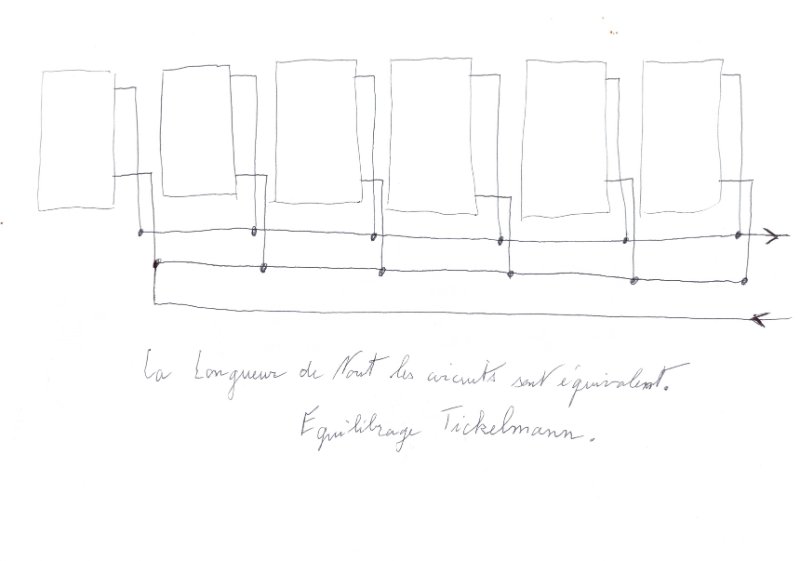 La Longueur de Tout les circuits sont équivalent.
Equilibrage Tickelmann.